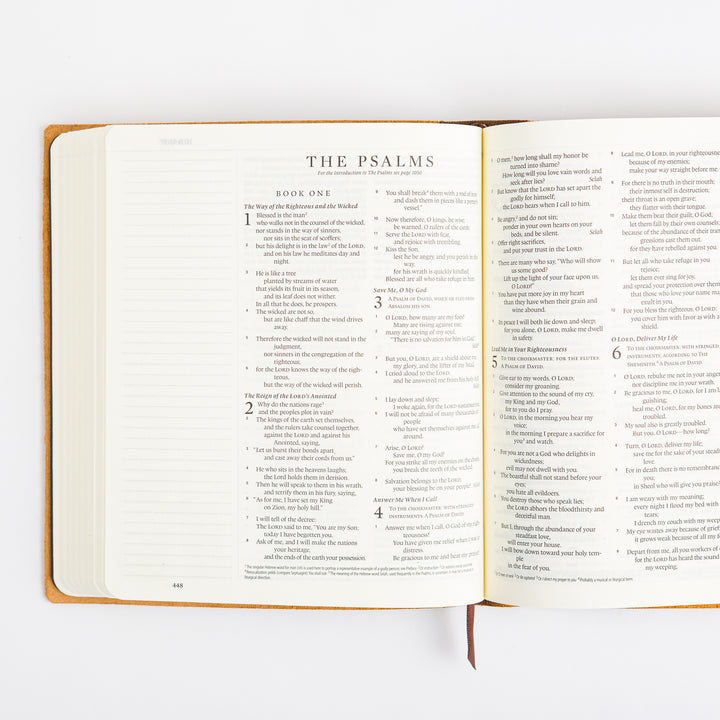 THE PSALMS
For the Introduction to The Psalms see page 1050
BOOK ONE
The Way of the Righteous and the Wicked
1 Blessed is the man¹
who walks not in the counsel of the wicked,
nor stands in the way of sinners,
nor sits in the seat of scoffers;
2 but his delight is in the law² of the LORD,
and on his law he meditates day and
night.
3 He is like a tree
planted by streams of water
that yields its fruit in its season,
and its leaf does not wither.
In all that he does, he prospers.
4 The wicked are not so,
but are like chaff that the wind drives
away.
5 Therefore the wicked will not stand in the
judgment,
nor sinners in the congregation of the
righteous;
6 for the LORD knows the way of the righ-
teous,
but the way of the wicked will perish.
The Reign of the LORD's Anointed
2 Why do the nations rage³
and the peoples plot in vain?
2 The kings of the earth set themselves,
and the rulers take counsel together,
against the LORD and against his
Anointed, saying,
3 "Let us burst their bonds apart
and cast away their cords from us."
4 He who sits in the heavens laughs;
the Lord holds them in derision.
5 Then he will speak to them in his wrath,
and terrify them in his fury, saying,
6 "As for me, I have set my King
on Zion, my holy hill."
7 I will tell of the decree:
The LORD said to me, "You are my Son;
today I have begotten you.
8 Ask of me, and I will make the nations
your heritage,
and the ends of the earth your possession.
9 You shall break⁴ them with a rod of iron
and dash them in pieces like a potter's
vessel."
10 Now therefore, O kings, be wise;
be warned, O rulers of the earth.
11 Serve the LORD with fear,
and rejoice with trembling.
12 Kiss the Son,
lest he be angry, and you perish in the
way,
for his wrath is quickly kindled.
Blessed are all who take refuge in him.
Save Me, O My God
3 A PSALM OF DAVID, WHEN HE FLED FROM
ABSALOM HIS SON.
1 O LORD, how many are my foes!
Many are rising against me;
2 many are saying of my soul,
"There is no salvation for him in God."
Selah
3 But you, O LORD, are a shield about me,
my glory, and the lifter of my head.
4 I cried aloud to the LORD,
and he answered me from his holy hill.
Selah
5 I lay down and slept;
I woke again, for the LORD sustained me.
6 I will not be afraid of many thousands of
people
who have set themselves against me all
around.
7 Arise, O LORD!
Save me, O my God!
For you strike all my enemies on the cheek;
you break the teeth of the wicked.
8 Salvation belongs to the LORD;
your blessing be on your people! Selah
Answer Me When I Call
4 TO THE CHOIRMASTER: WITH STRINGED
INSTRUMENTS. A PSALM OF DAVID.
1 Answer me when I call, O God of my righ-
teousness!
You have given me relief when I was in
distress.
Be gracious to me and hear my prayer!
448
2 O men, how long shall my honor be
turned into shame?
How long will you love vain words and
seek after lies? Selah
3 But know that the LORD has set apart the
godly for himself;
the LORD hears when I call to him.
4 Be angry, and do not sin;
ponder in your own hearts on your
beds, and be silent. Selah
5 Offer right sacrifices,
and put your trust in the LORD.
6 There are many who say, "Who will show
us some good?
Lift up the light of your face upon us,
O LORD!"
7 You have put more joy in my heart
than they have when their grain and
wine abound.
8 In peace I will both lie down and sleep;
for you alone, O LORD, make me dwell
in safety.
Lead Me in Your Righteousness
5 TO THE CHOIRMASTER: FOR THE FLUTES.
A PSALM OF DAVID.
1 Give ear to my words, O LORD;
consider my groaning.
2 Give attention to the sound of my cry,
my King and my God,
for to you do I pray.
3 O LORD, in the morning you hear my
voice;
in the morning I prepare a sacrifice for
you and watch.
4 For you are not a God who delights in
wickedness;
evil may not dwell with you.
5 The boastful shall not stand before your
eyes;
you hate all evildoers.
6 You destroy those who speak lies;
the LORD abhors the bloodthirsty and
deceitful man.
7 But I, through the abundance of your
steadfast love,
will enter your house.
I will bow down toward your holy tem-
ple
in the fear of you.
8 Lead me, O LORD, in your righteousness
because of my enemies;
make your way straight before me.
9 For there is no truth in their mouth;
their inmost self is destruction;
their throat is an open grave;
they flatter with their tongue.
10 Make them bear their guilt, O God;
let them fall by their own counsels;
because of the abundance of their trans-
gressions cast them out,
for they have rebelled against you.
11 But let all who take refuge in you
rejoice;
let them ever sing for joy,
and spread your protection over them,
that those who love your name may
exult in you.
12 For you bless the righteous, O LORD;
you cover him with favor as with a
shield.
O LORD, Deliver My Life
6 TO THE CHOIRMASTER: WITH STRINGED
INSTRUMENTS; ACCORDING TO THE
SHEMINITH. A PSALM OF DAVID.
1 O LORD, rebuke me not in your anger,
nor discipline me in your wrath.
2 Be gracious to me, O LORD, for I am
languishing;
heal me, O LORD, for my bones are
troubled.
3 My soul also is greatly troubled.
But you, O LORD—how long?
4 Turn, O LORD, deliver my life;
save me for the sake of your steadfast
love.
5 For in death there is no remembrance
you;
in Sheol who will give you praise?
6 I am weary with my moaning;
every night I flood my bed with
tears;
I drench my couch with my weeping
7 My eye wastes away because of grief
it grows weak because of all my
8 Depart from me, all you workers of
for the LORD has heard the sound
my weeping.